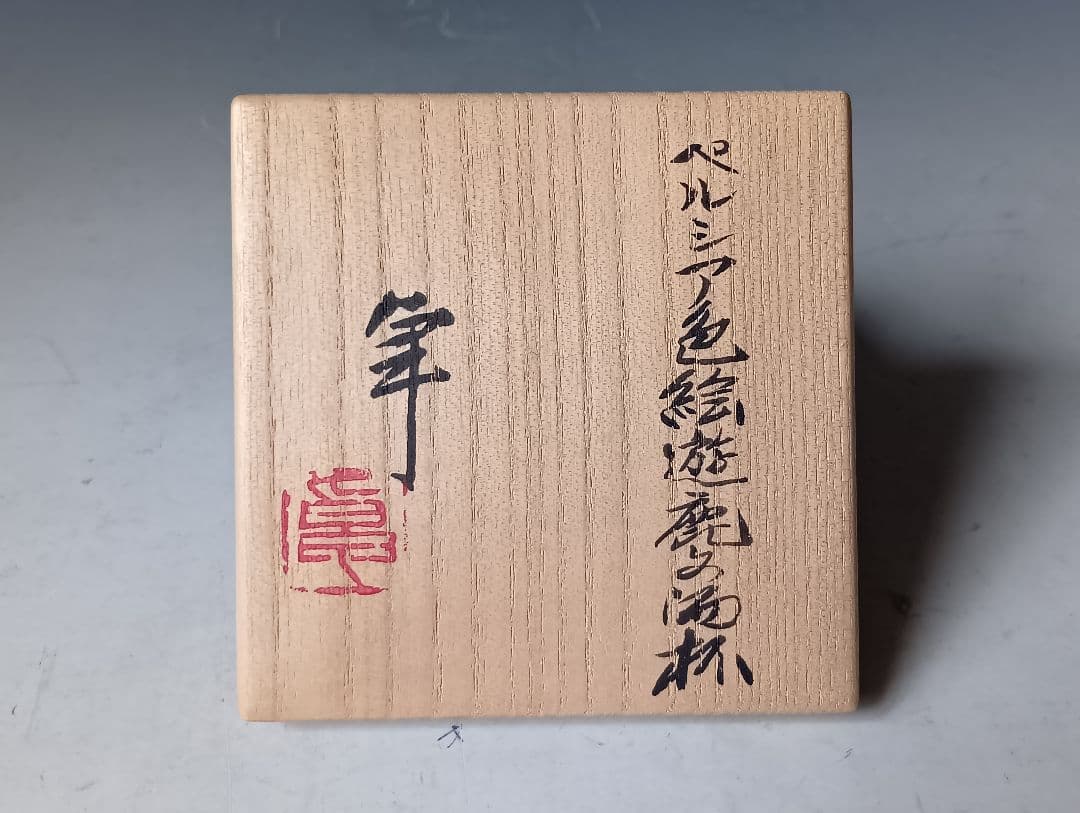 ペルシア色絵遊鹿文酒杯